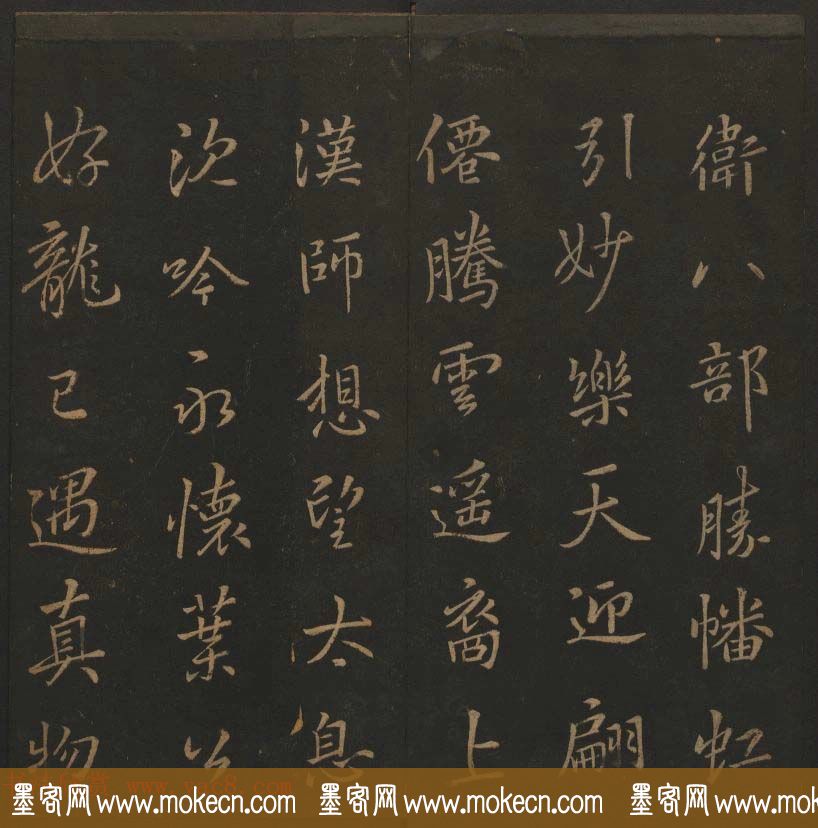 衛八部勝幡虹
引妙樂天迎翩
僊騰雲遥裔上
漢師想望太息
沈吟永懷葉公
好龍已遇真物
墨客网 www.mokecn.com 墨客网 www.mokecn.com 墨客网 www.mokecn